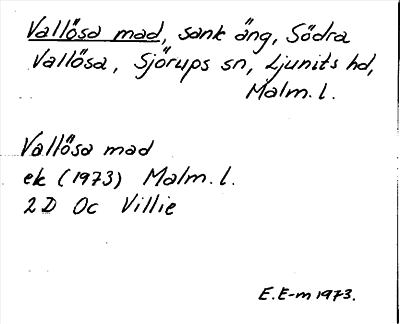 Vallösa mad, sank äng, Södra
Vallösa, Sjörups sn, Ljunits hd,
Malm. l.
Vallösa mad
ek (1973) Malm. l.
2D Oc Villie
E.E-m 1973.